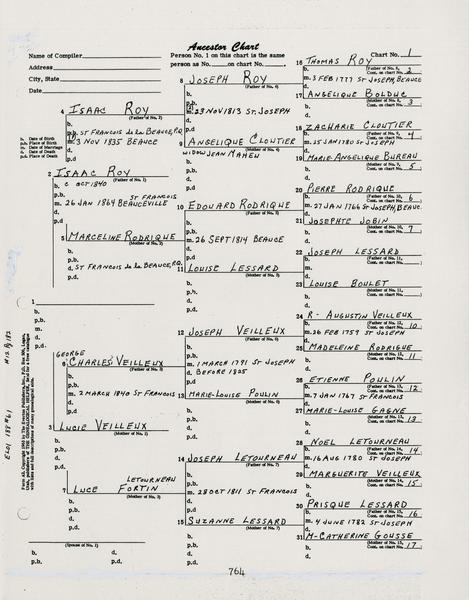 Ancestor Chart
Name of Compiler
Address
City, State
Date
Person No. 1 on this chart is the same
person as No. on chart No.
Chart No. 1
b. Date of Birth
p.b. Place of Birth
m. Date of Marriage
d. Date of Death
p.d. Place of Death
1
b.
p.b.
m.
d.
p.d.
2 ISAAC ROY
(Father of No. 1)
b. C OCT 1840
p.b. ST FRANCOIS
m. 26 JAN 1864 BEAUCEVILLE
d.
p.d.
3 LUCIE VEILLEUX
(Mother of No. 1)
b.
p.b.
d.
p.d.
(Spouse of No. 1)
b. d.
p.b. p.d.
4 ISAAC ROY
(Father of No. 2)
b.
p.b. ST FRANCOIS de la BEAUCE, P.Q.
m. 3 NOV 1835 BEAUCE
d.
p.d.
5 MARCELINE RODRIQUE
(Mother of No. 2)
b.
p.b.
d. ST FRANCOIS de la BEAUCE, P.Q.
p.d.
GEORGE
6 CHARLES VEILLEUX
(Father of No. 3)
b.
p.b.
m. 2 MARCH 1840 ST FRANCOIS
d.
p.d.
LETOURNEAU
7 LUCE FORTIN
(Mother of No. 3)
b.
p.b.
d.
p.d.
8 JOSEPH ROY
(Father of No. 4)
b.
p.b.
m. 23 NOV 1813 ST. JOSEPH
d.
p.d.
9 ANGELIQUE CLOUTIER
(Mother of No. 4)
WIDOW JEAN MAHEU
b.
p.b.
d.
p.d.
10 EDOUARD RODRIQUE
(Father of No. 5)
b.
p.b.
m. 26 SEPT 1814 BEAUCE
d.
p.d.
11 LOUISE LESSARD
(Mother of No. 5)
b.
p.b.
d.
p.d.
12 JOSEPH VEILLEUX
(Father of No. 6)
b.
p.b.
m. 1 MARCH 1791 ST JOSEPH
d. BEFORE 1805
p.d.
13 MARIE-LOUISE POULIN
(Mother of No. 6)
b.
p.b.
d.
p.d.
14 JOSEPH LETOURNEAU
(Father of No. 7)
b.
p.b.
m. 28 OCT 1811 ST FRANCOIS
d.
p.d.
15 SUZANNE LESSARD
(Mother of No. 7)
b.
p.b.
d.
p.d.
16 THOMAS ROY
(Father of No. 8,
Cont. on chart No. 2)
b.
m. 3 FEB 1777 ST JOSEPH, BEAUCE
d.
17 ANGELIQUE BOLDUC
(Mother of No. 8,
Cont. on chart No. 3)
b.
d.
18 ZACHARIE CLOUTIER
(Father of No. 9,
Cont. on chart No. 4)
b.
m. 25 JAN 1780 ST JOSEPH
d.
19 MARIE-ANGELIQUE BUREAU
(Mother of No. 9,
Cont. on chart No. 5)
b.
d.
20 PIERRE RODRIQUE
(Father of No. 10,
Cont. on chart No. 6)
b.
m. 27 JAN 1766 ST JOSEPH, BEAUC.
d.
21 JOSEPHTE JOBIN
(Mother of No. 10,
Cont. on chart No. 7)
b.
d.
22 JOSEPH LESSARD
(Father of No. 11,
Cont. on chart No. )
b.
m.
d.
23 LOUISE BOULET
(Mother of No. 11,
Cont. on chart No. )
b.
d.
24 R- AUGUSTIN VEILLEUX
(Father of No. 12,
Cont. on chart No. 10)
b.
m. 26 FEB 1759 ST JOSEPH
d.
25 MADELEINE RODRIGUE
(Mother of No. 12,
Cont. on chart No. 11)
b.
d.
26 ETIENNE POULIN
(Father of No. 13,
Cont. on chart No. 12)
b.
m. 7 JAN 1767 ST FRANCOIS
d.
27 MARIE-LOUISE GAGNE
(Mother of No. 13,
Cont. on chart No. 13)
b.
d.
28 NOEL LETOURNEAU
(Father of No. 14,
Cont. on chart No. 14)
b.
m. 16 AUG 1780 ST JOSEPH
d.
29 MARGUERITE VEILLEUX
(Mother of No. 14,
Cont. on chart No. 15)
b.
d.
30 PRISQUE LESSARD
(Father of No. 15,
Cont. on chart No. 16)
b.
m. 4 JUNE 1782 ST JOSEPH
d.
31 M-CATHERINE GOUSSE
(Mother of No. 15,
Cont. on chart No. 17)
b.
d.
764